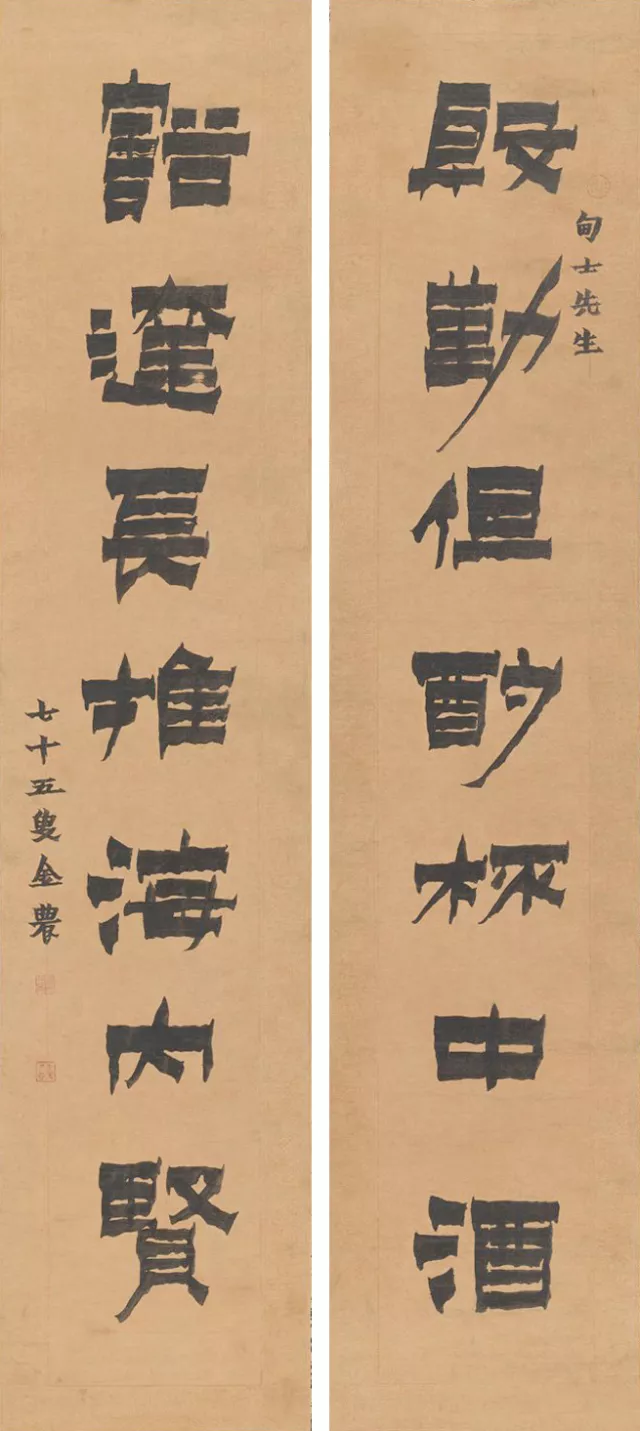 甸士先生
殷勤但酌杯中酒
豁達長推海内賢
七十五叟金農